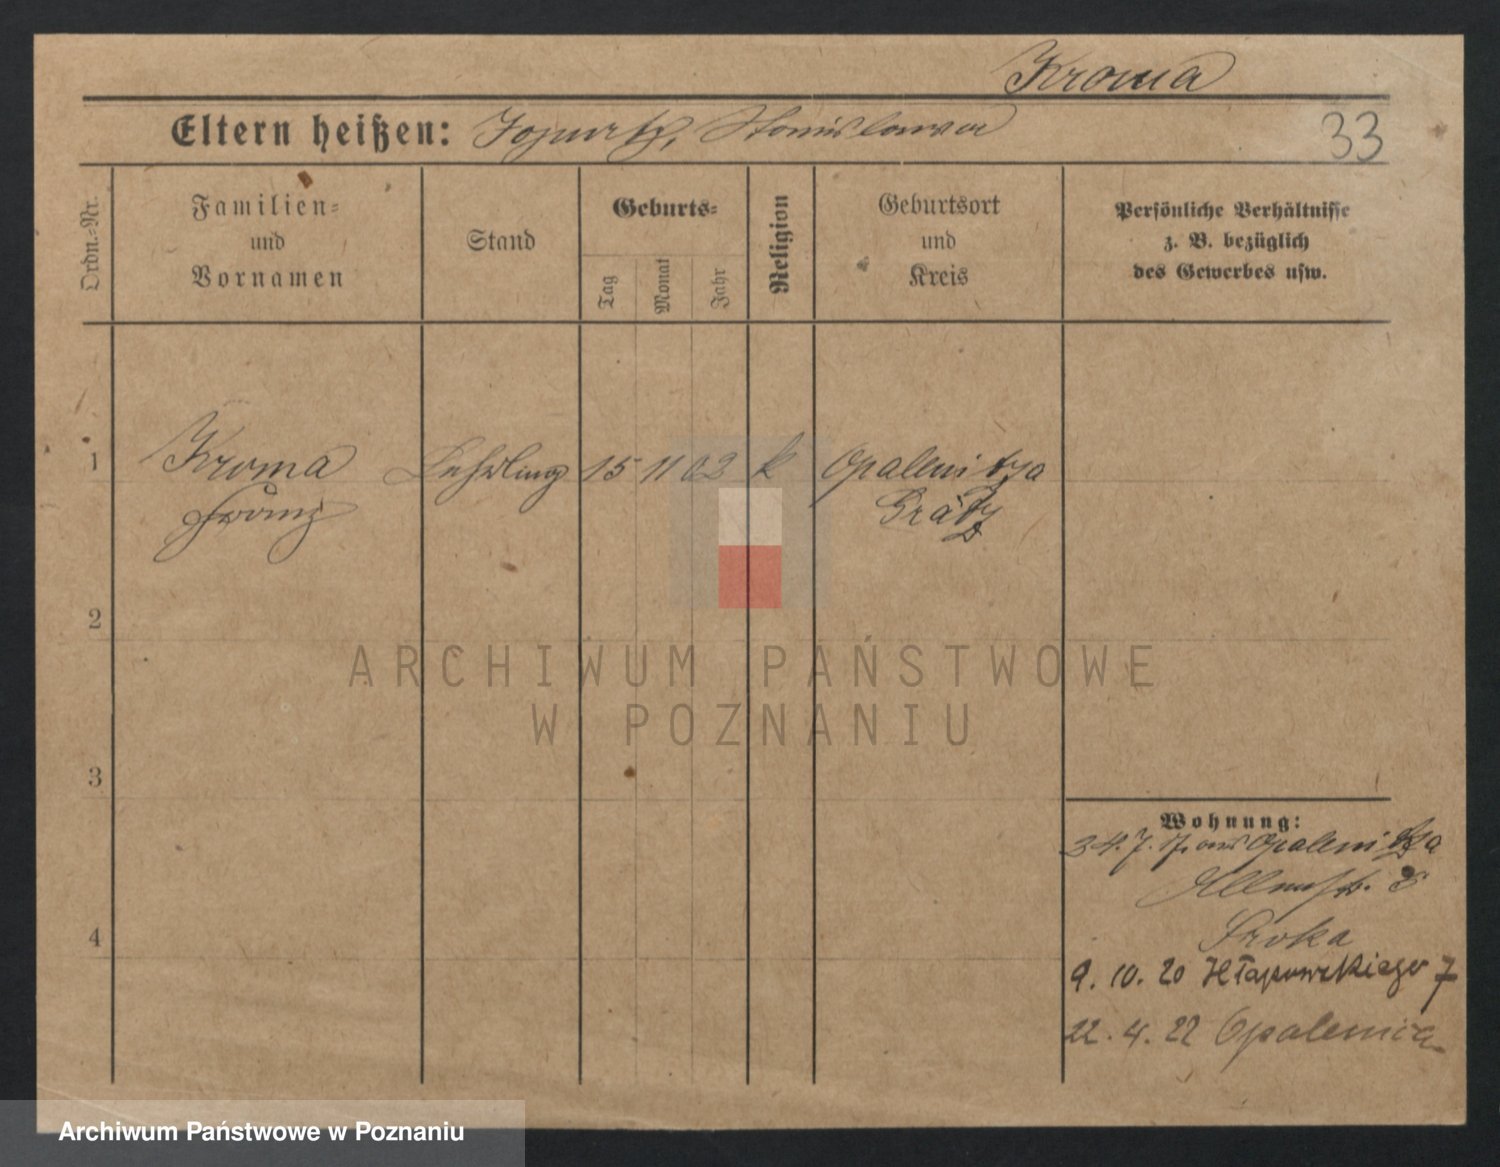 Kroma
Eltern heißen: Stanislawa
33
Ordn.=Nr.
Familien=
und
Vornamen
Stand
Geburts=
Tag
Monat
Jahr
Religion
Geburtsort
und
Kreis
Persönliche Verhältnisse
z. B. bezüglich
des Gewerbes usw.
1
Kroma Lehrling 15 11 02 k Opalenitza
Franz Grätz
2
ARCHIWUM PAŃSTWOWE
W POZNANIU
3
Wohnung:
24. 7. 17. aus Opalenitza
8
Sroka
9. 10. 20 Chłapowskiego 7
22. 4. 22 Opalenica
4
Archiwum Państwowe w Poznaniu